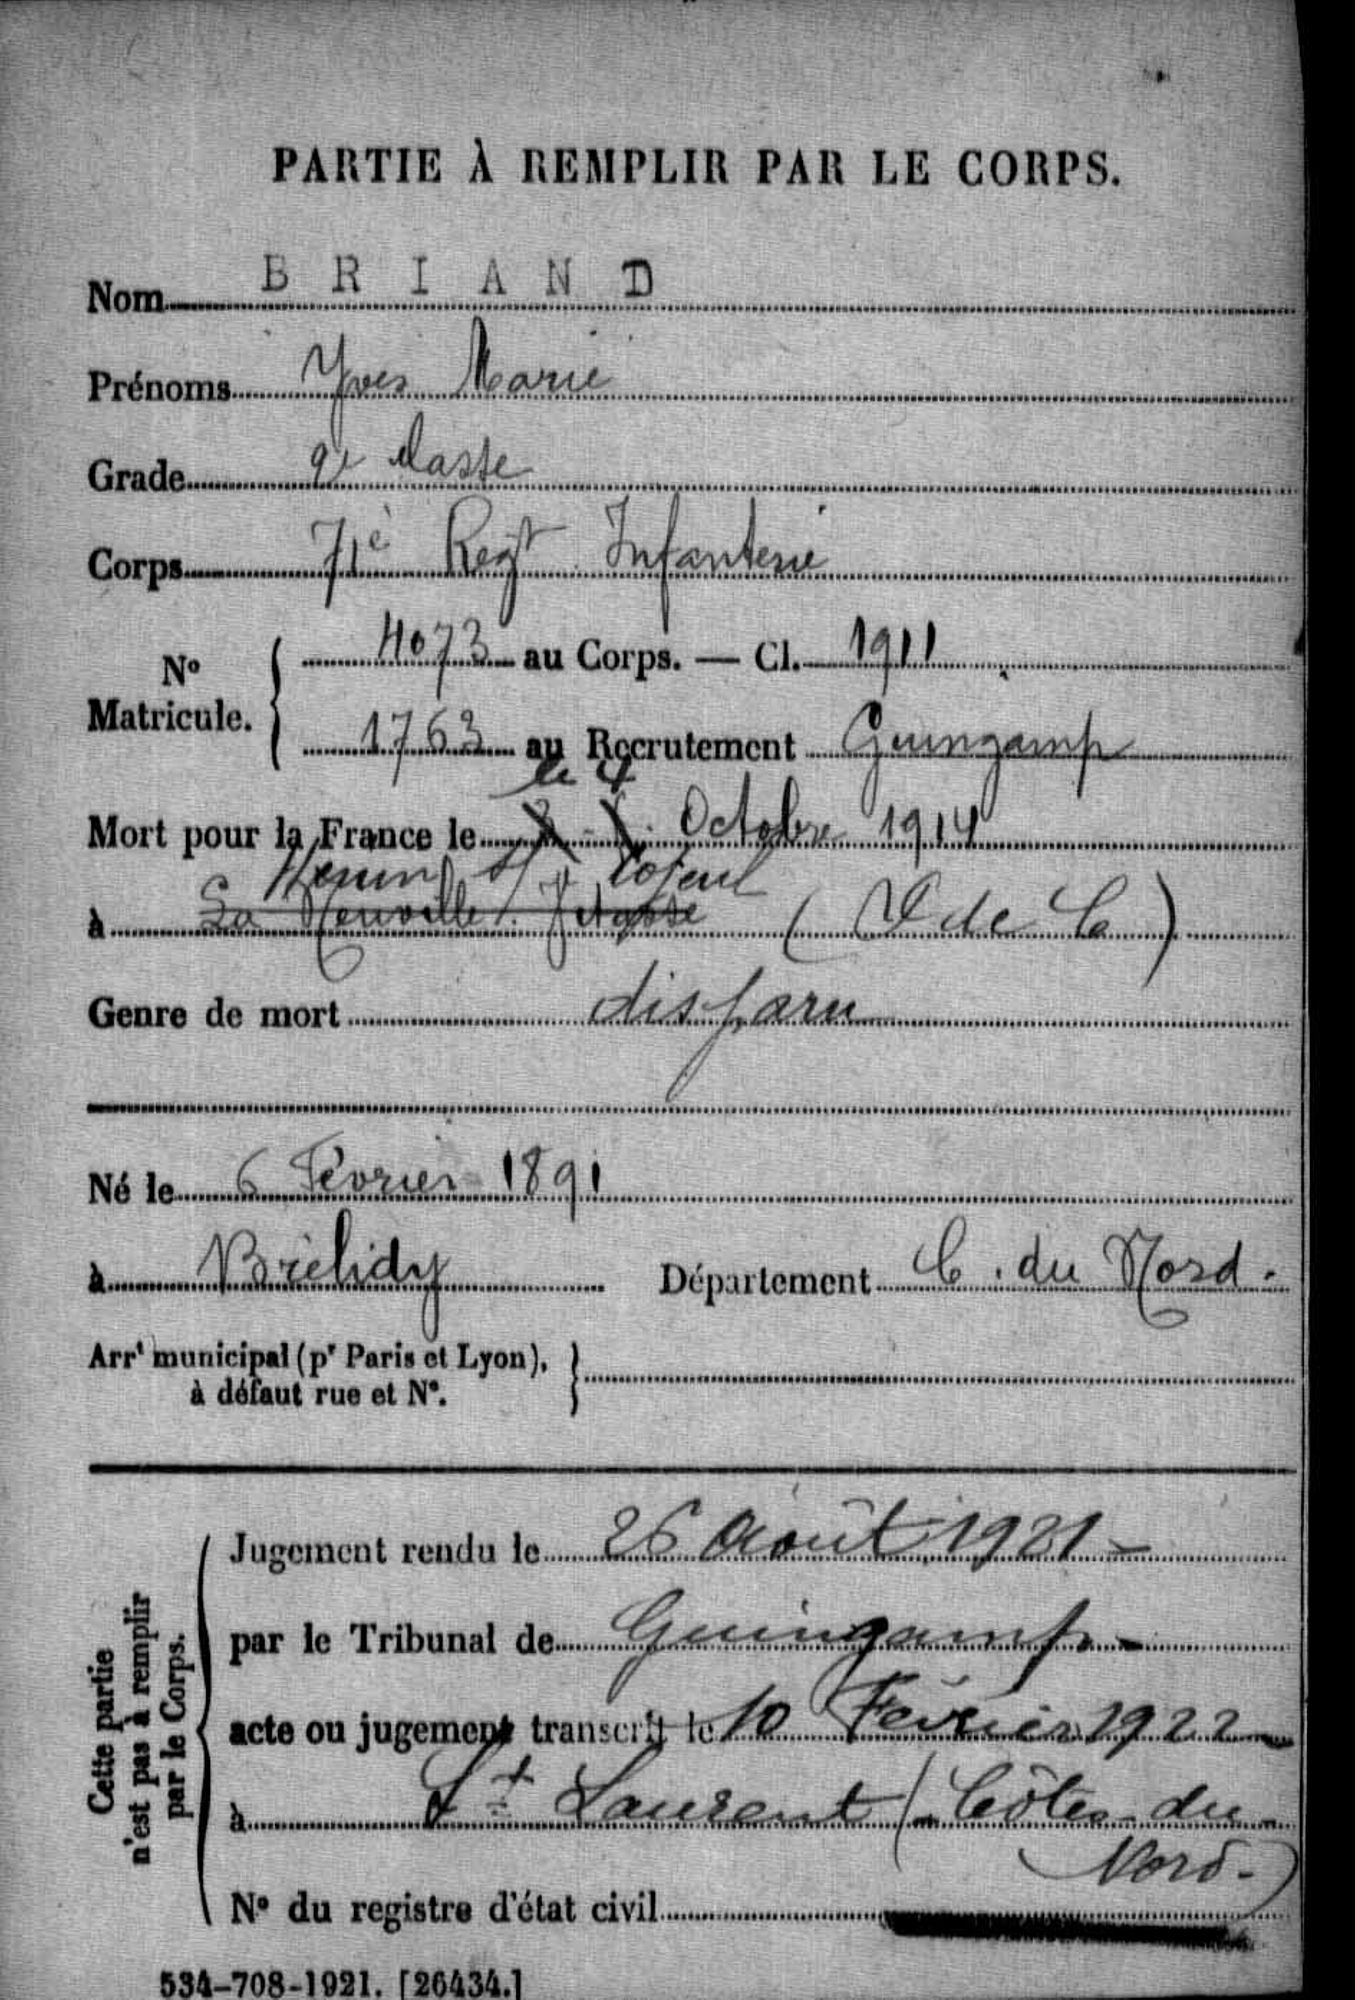 PARTIE À REMPLIR PAR LE CORPS.
Nom B R I A N D
Prénoms Yves Marie
Grade 2e classe
Corps 71è Regt Infanterie
No Matricule. { 4073 au Corps. — Cl. 1911
1763 au Recrutement Guingamp
le 4
Mort pour la France le Octobre 1914
Henin s/ Cojeul
à La Neuville Vitasse (P de C)
Genre de mort disparu
Né le 6 Février 1891
à Brélidy Département C. du Nord.
Arrt municipal (pr Paris et Lyon),
à défaut rue et No.
Cette partie
n'est pas à remplir
par le Corps.
Jugement rendu le 26 Août 1921 -
par le Tribunal de Guingamp -
acte ou jugement transcrit le 10 Février 1922
à St Laurent (Côtes-du-
Nord-)
No du registre d'état civil
534-708-1921. [26434.]